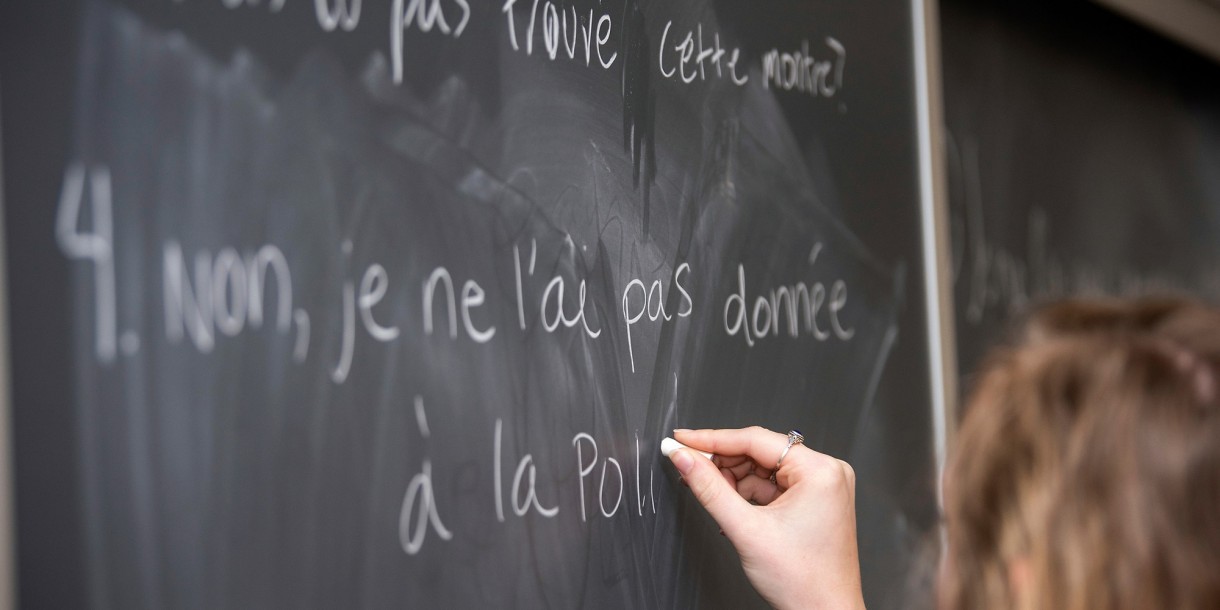 pas trouvé cette montre?
4. Non, je ne l'ai pas donnée
à la Poli